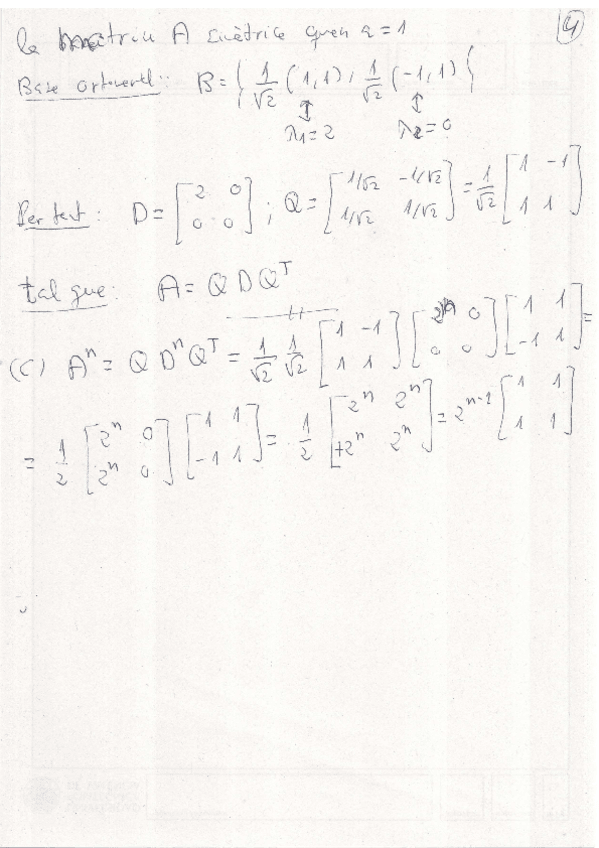 4
la matriu A simètrica quan a = 1
Base ortonormal: B = { 1/√2 (1,1), 1/√2 (-1,1) }
λ1 = 2 λ2 = 0
Per tant: D = [2 0; 0 0]; Q = [1/√2 -1/√2; 1/√2 1/√2] = 1/√2 [1 -1; 1 1]
tal que: A = Q D Q^T
(c) A^n = Q D^n Q^T = 1/√2 1/√2 [1 -1; 1 1] [2^n 0; 0 0] [1 1; -1 1] =
= 1/2 [2^n 0; 2^n 0] [1 1; -1 1] = 1/2 [2^n 2^n; +2^n 2^n] = 2^{n-1} [1 1; 1 1]